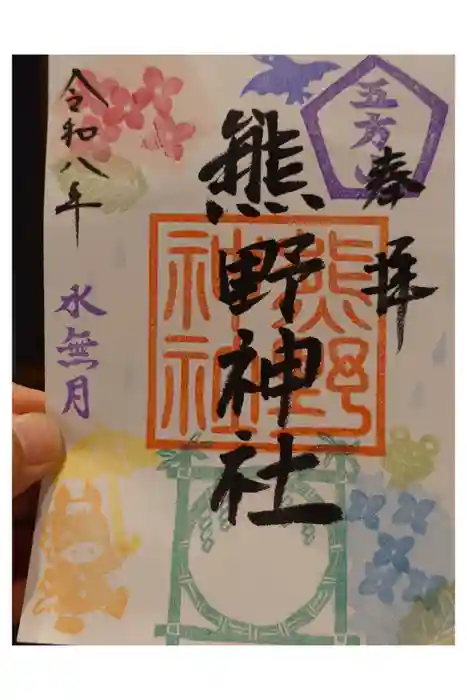 奉拝
五方山
熊野神社
熊野
神社
令和八年
水無月